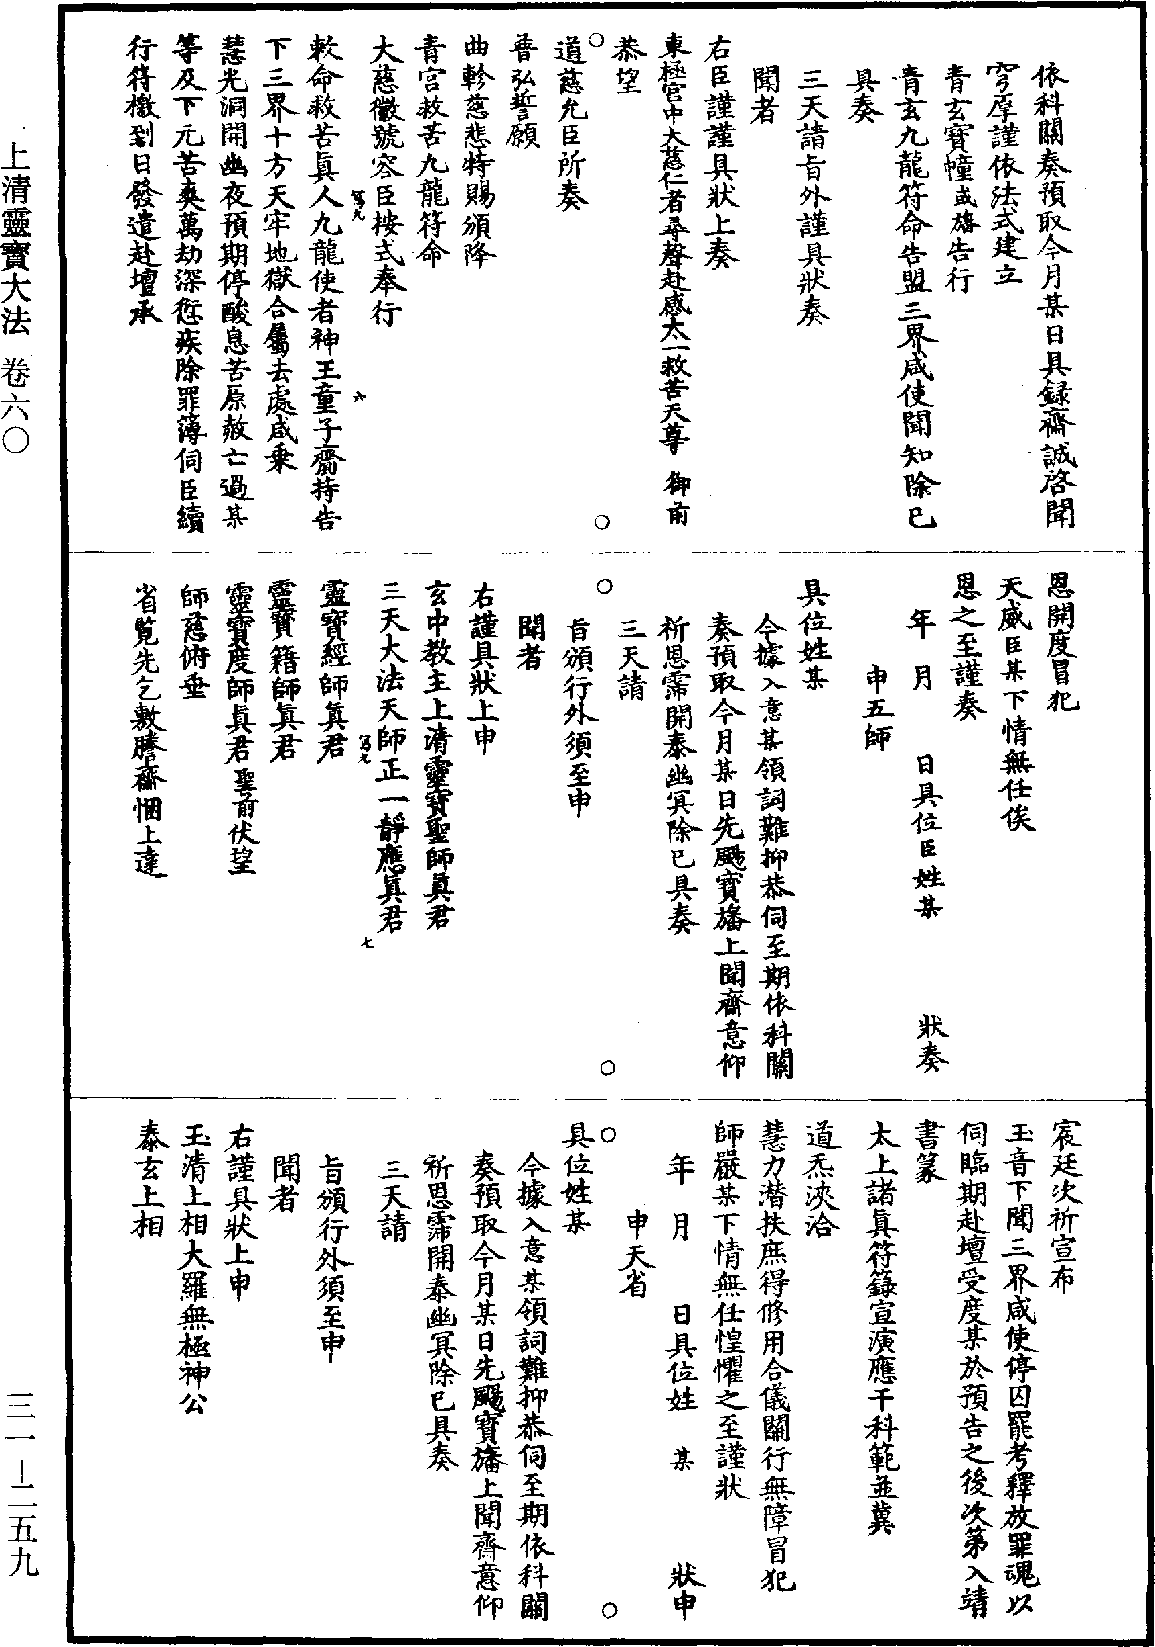 依科關奏預取今月某日具録齋誠啓聞
穹厚謹依法式建立
青玄寶幢或旛告行
青玄九龍符命告盟三界咸使聞知除已
具奏
三天請旨外謹具狀奏
聞者
右臣謹謹具狀上奏
東極宮中大慈仁者尋聲赴感太一救苦天尊 御前
恭望
道慈允臣所奏
普弘誓願
曲軫慈悲特賜頒降
青宮救苦九龍符命
大慈徽號容臣按式奉行
敕命救苦眞人九龍使者神王童子齎持告
下三界十方天牢地獄合屬去處咸乗
慧光洞開幽夜預期停酸息苦原赦亡過某
等及下元苦爽萬劫深愆疾除罪簿伺臣續
行符檄到日發遣赴壇承
恩開度冒犯
天威臣某下情無任俟
恩之至謹奏
年 月 日具位臣姓某 狀奏
申五師
具位姓某
今據入意某領詞難抑恭伺至期依科關
奏預取今月某日先颺寶旛上聞齋意仰
祈恩霈開泰幽冥除已具奏
三天請
旨頒行外須至申
聞者
右謹具狀上申
玄中教主上清靈寶聖師眞君
三天大法天師正一靜應眞君
靈寶經師眞君
靈寶籍師眞君
靈寶度師眞君聖前伏望
師慈俯垂
省覧先乞敷騰齋悃上達
宸廷次祈宣布
玉音下聞三界咸使停囚罷考釋放罪魂以
伺臨期赴壇受度某於預告之後次第入靖
書篆
太上諸眞符籙宣演應干科範並冀
道炁浹洽
慧力潛扶庶得修用合儀關行無障冒犯
師嚴某下情無任惶懼之至謹狀
年 月 日具位姓 某 狀申
申天省
具位姓某
今據入意某領詞難抑恭伺至期依科關
奏預取今月某日先颺寶旛上聞齋意仰
祈恩霈開泰幽冥除已具奏
三天請
旨頒行外須至申
聞者
右謹具狀上申
玉清上相大羅無極神公
泰玄上相
上清靈寶大法 卷六〇
三一—二五九